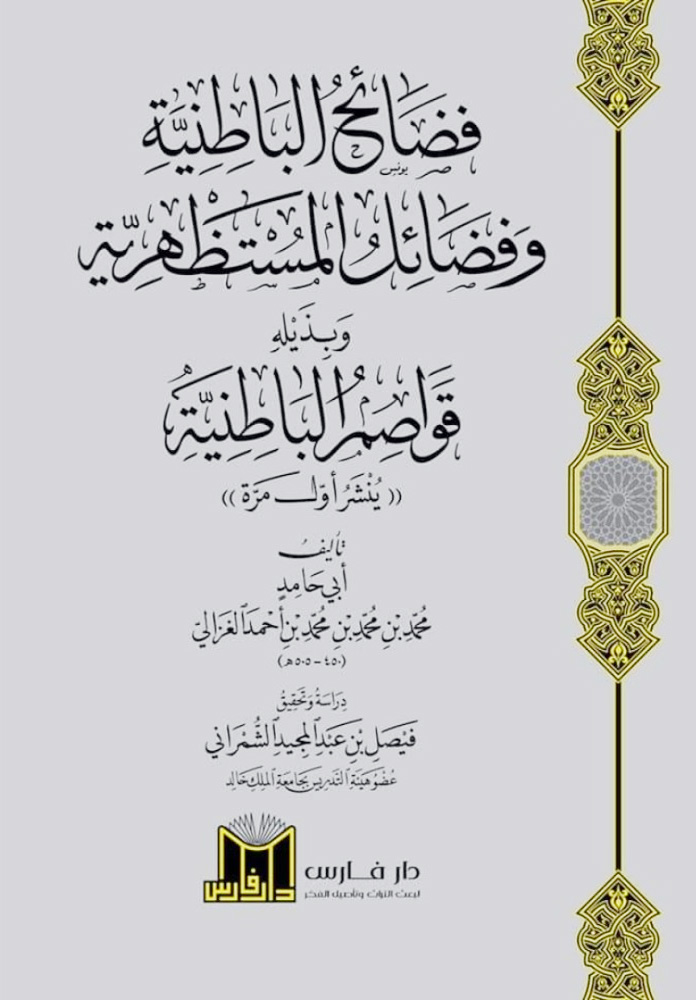 فَضَائِحُ البَاطِنِيَّةِ
يونس
وَفَضَائِلُ المُسْتَظْهِرِيَّة
وَبِذَيْلِهِ
قَوَاصِمُ البَاطِنِيَّةِ
((يُنْشَرُ أَوَّلَ مَرَّة))
تأليفُ
أبي حَامِدٍ
مُحَمَّدِ بْنِ مُحَمَّدِ بْنِ مُحَمَّدِ بْنِ أَحْمَدَ الغَزَاليّ
(٤٥٠ - ٥٠٥ هـ)
دِرَاسَةُ وَتَحْقِيقُ
فَيْصَلِ بْنِ عَبْدِ المَجِيدِ الشُّمْرَاني
عُضْوُ هَيْئَةِ التَّدْرِيسِ بِجَامِعَةِ المَلِكِ خَالِد
دار فارس
دار فارس
لبعث التراث وتأصيل الفكر